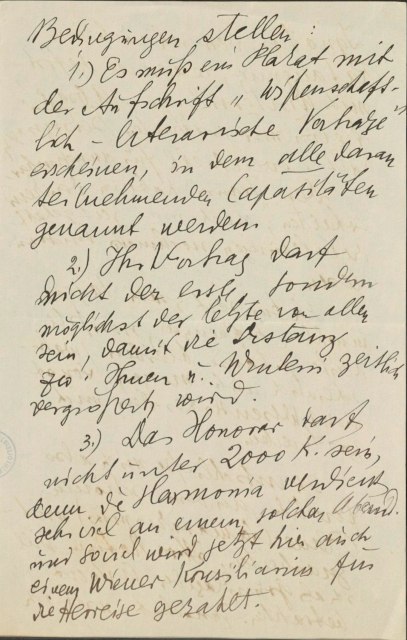 Bedingungen stellen:
1.) Es muß ein Plakat mit
der Aufschrift „Wissenschaft-
lich-literarische Vorträge"
erscheinen, in dem alle daran
teilnehmenden Capazitäten
genannt werden.
2.) Ihr Vortrag darf
nicht der erste, sondern
möglichst der letzte von allen
sein, damit die Distanz
zw. Ihnen u. zeitlich
vergrößert wird.
3.) Das Honorar darf
nicht unter 2000 K. sein,
denn die Harmonia verdient
sehr viel an einem solchen Abend.
und soviel wird jetzt hier auch
einem Wiener Konsiliarius für
die Herreise gezahlt.